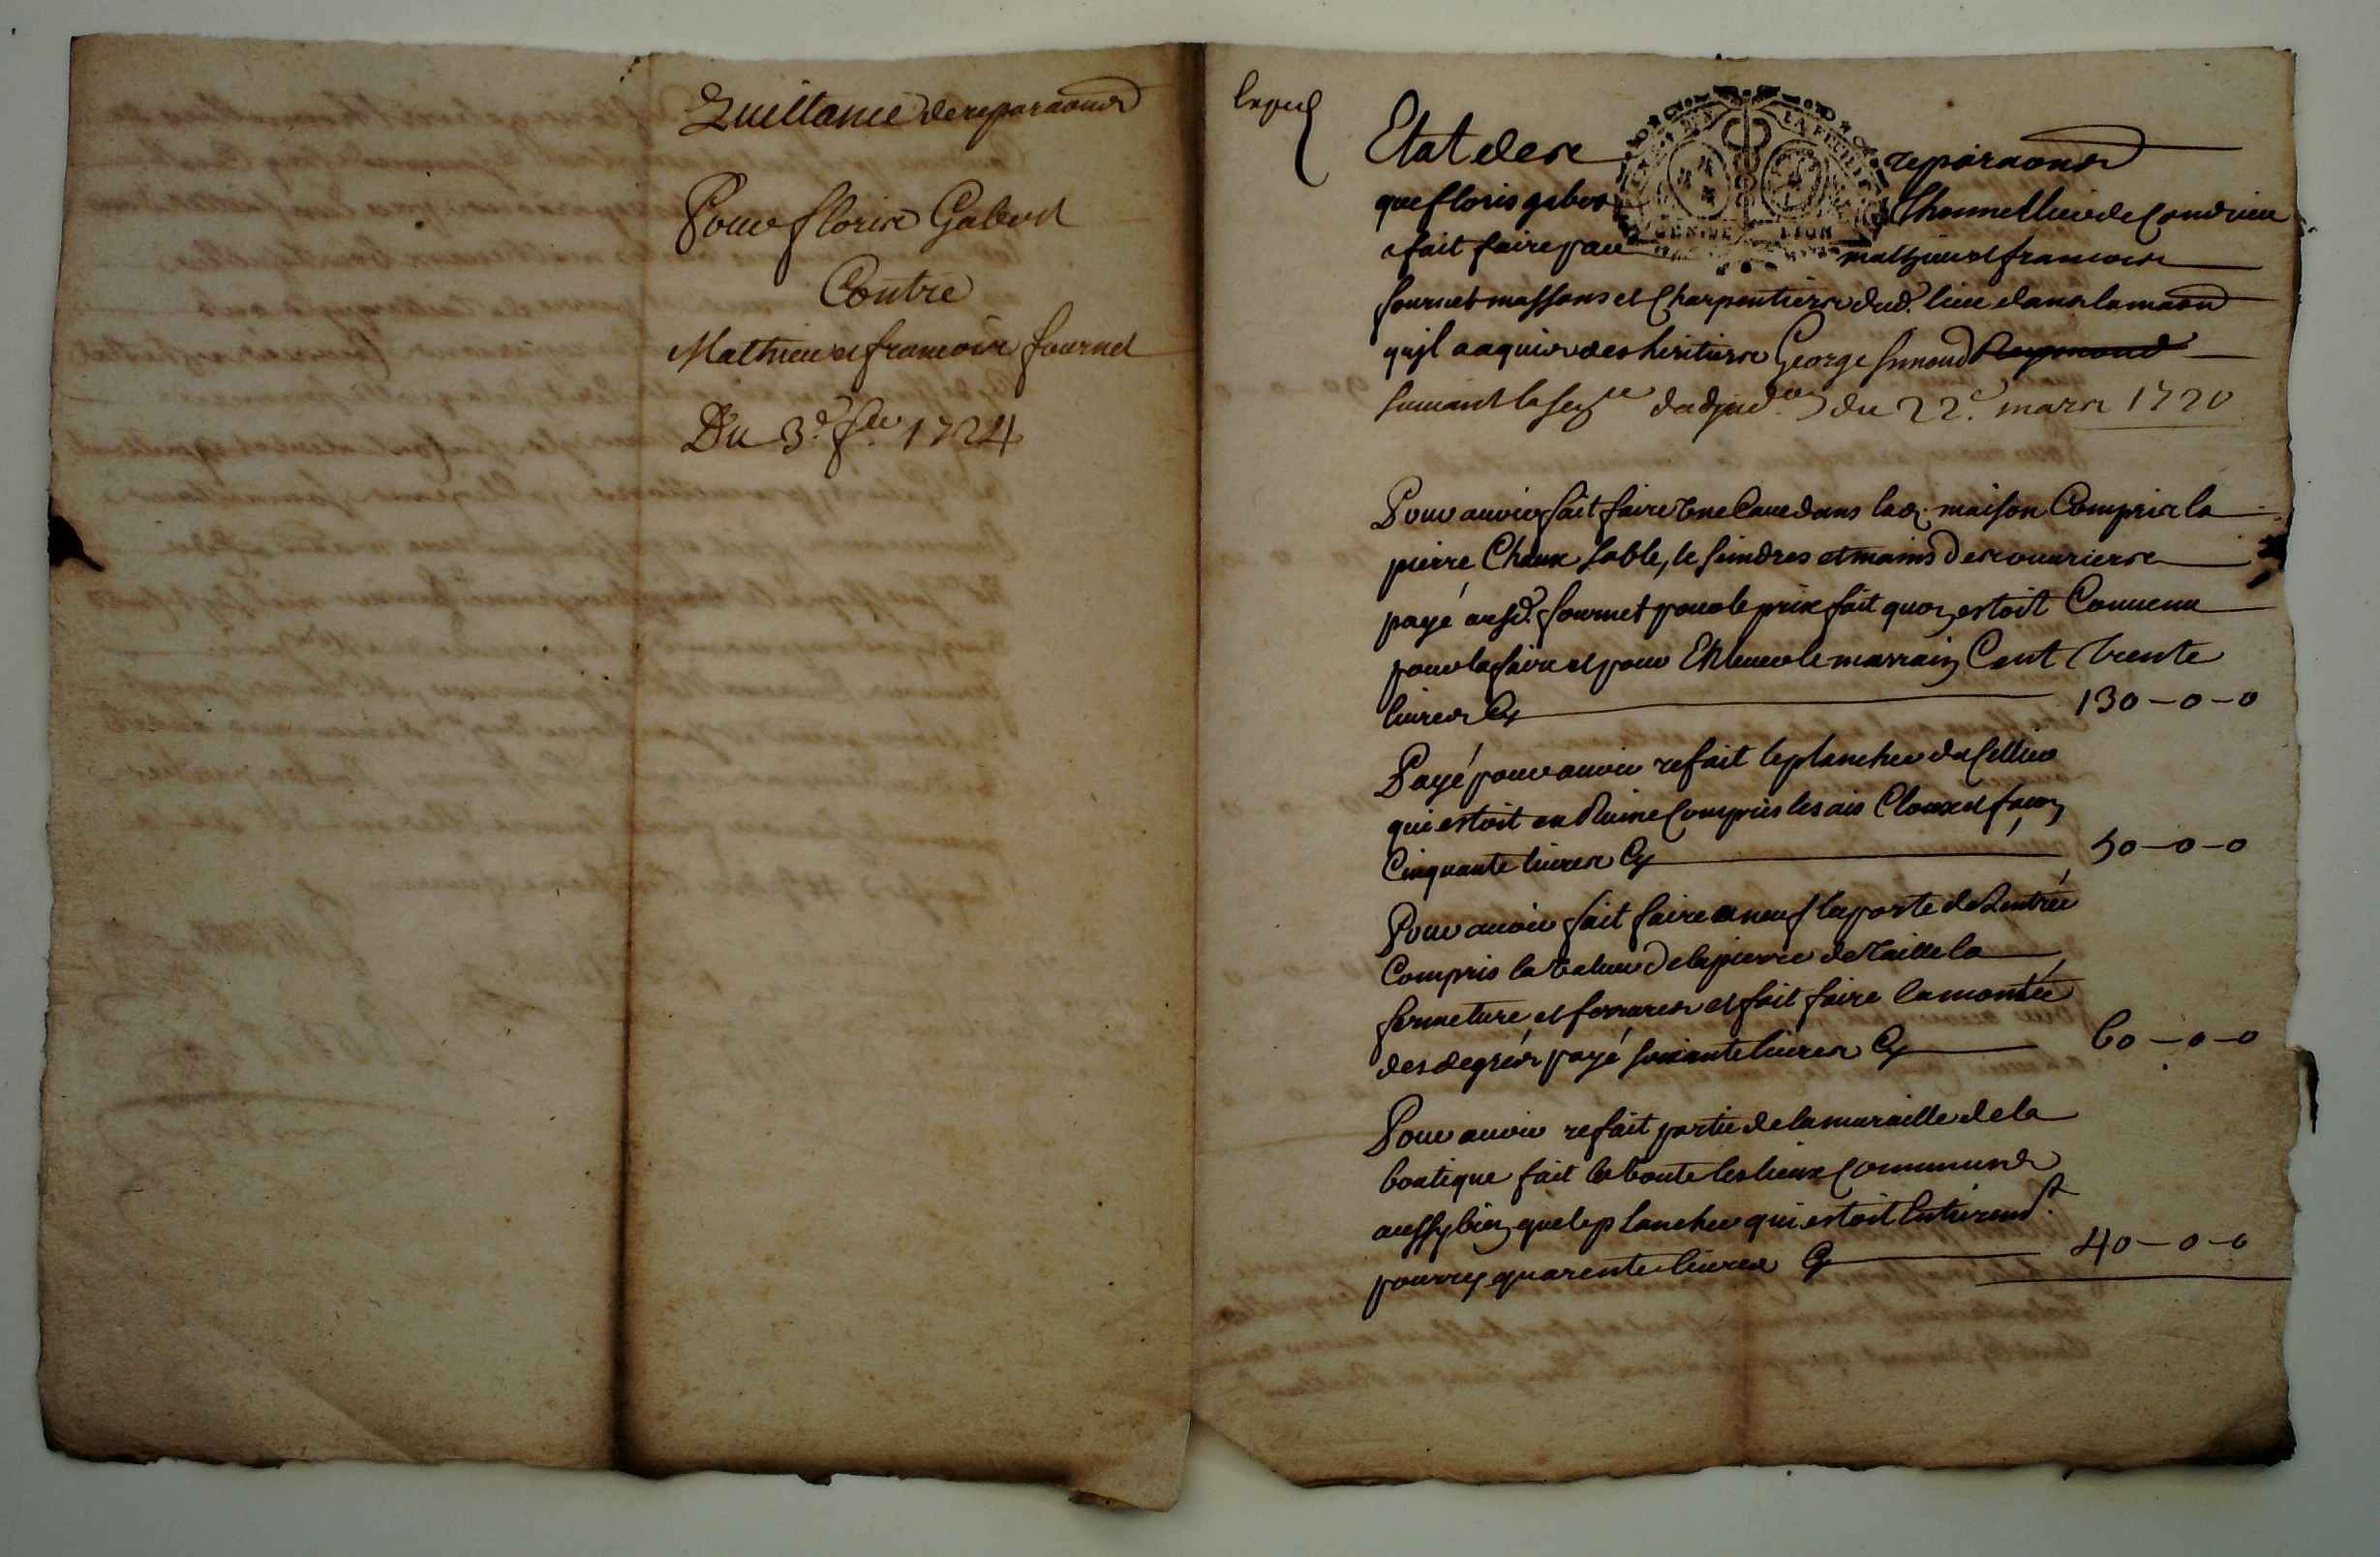 Quittance de reparaons
Pour floris Gabert
Contre
Mathieu et francois fournet
Du 3e 1724
Etat des reparaons
que floris gabert Thonnellier de Condrieu
a fait faire par mathieu et francois
fournet massons et Charpentiers dud. lieu dans la maon
quyl a aquis des heritiers George
suivant la du 22e mars 1720
GEN DE LION
Pour avoir fait faire une Cave dans lad. maison Compris la
pierre Chaux sable, le seindres et mains des ouvriers
payé ausd. fournet pour le prix fait quon estoit Convenu
pour la faire et pour Enlever le marrain Cent trente
livres Cy 130-0-0
Payé pour avoir refait le plancher du Cellier
qui estoit en Ruine Compris les ais Cloux et facon
Cinquante livres Cy 50-0-0
Pour avoir fait faire a neuf la porte de Lentrée
Compris la valeur de la pierre de taille la
fermeture et ferrures et fait faire la montée
des degrés payé soixante livres Cy 60-0-0
Pour avoir refait partie de la muraille de la
boutique fait la voute les lieux Communs
aussy bien que le plancher qui estoit Entierement
pourry quarente livres Cy 40-0-0